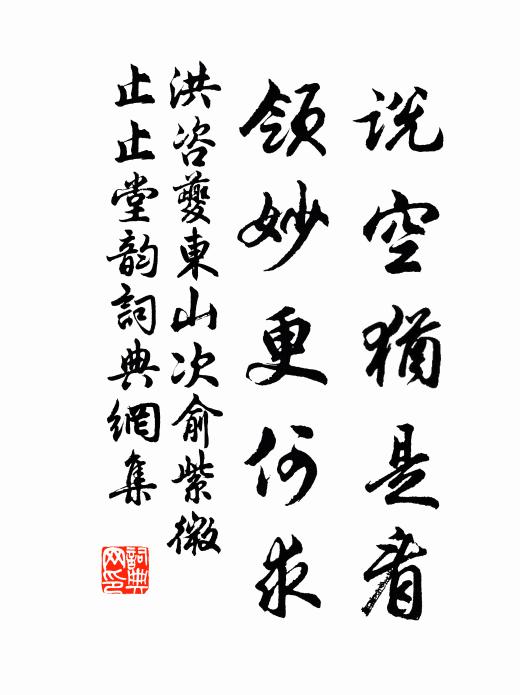 说空犹是着
领妙更何求
洪咨夔東山次俞紫微
止止堂韵詞典網集
詞典
网印